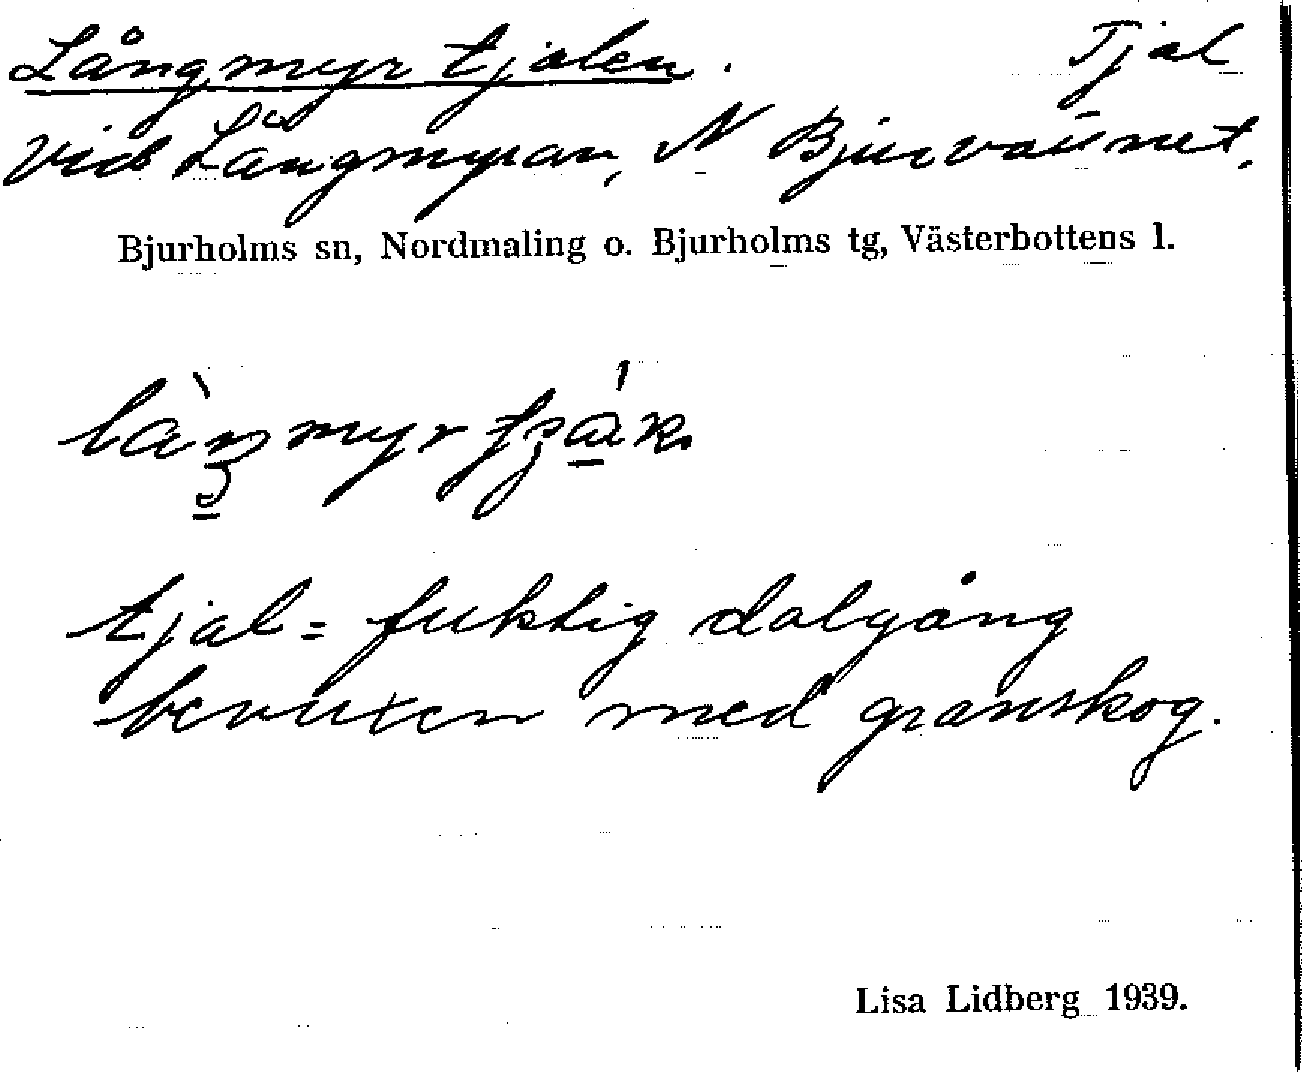 Långmyrtjalen. Tjal
vid Långmyran, N Bjurvattnet.
Bjurholms sn, Nordmaling o. Bjurholms tg, Västerbottens l.
tjal = fuktig dalgång
bevuxen med granskog.
Lisa Lidberg 1939.